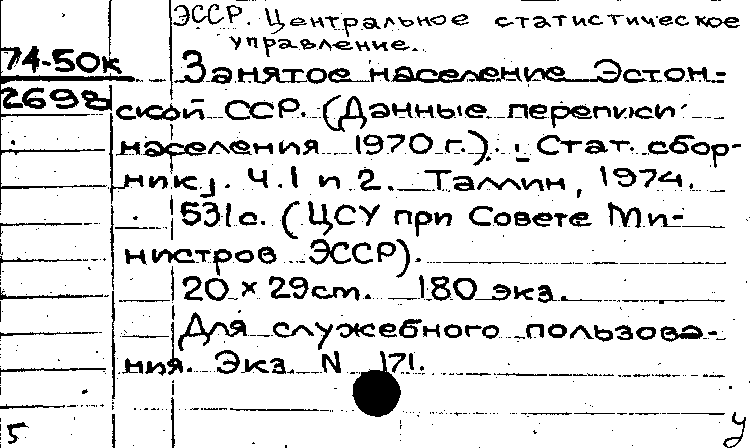 ЭССР. Центральное статистическое
управление.
74-50к
2698
Занятое население Эстон-
ской ССР. (Данные переписи
населения 1970 г.). : Стат. сбор-
ник. Ч. 1 и 2. Таллин, 1974.
531с. (ЦСУ при Совете Ми-
нистров ЭССР).
20 × 29 ст. 180 экз.
Для служебного пользова-
ния. Экз. N 171.
5
У